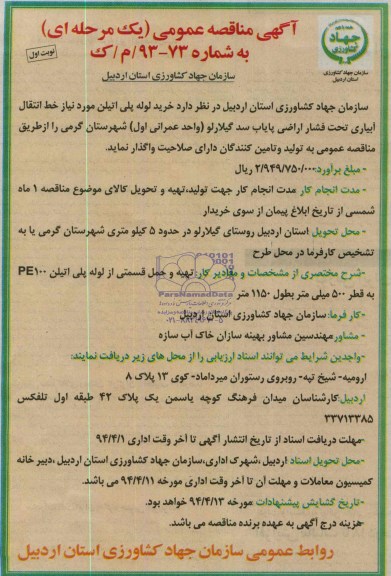 آگهی مناقصه عمومی (یک مرحله ای)
به شماره ۷۳-۹۳/م/ک
نوبت اول
جهاد کشاورزی
سازمان جهاد کشاورزی استان اردبیل
سازمان جهاد کشاورزی استان اردبیل
سازمان جهاد کشاورزی استان اردبیل در نظر دارد خرید لوله پلی اتیلن مورد نیاز خط انتقال
آبیاری تحت فشار اراضی پایاب سد گیلارلو (واحد عمرانی اول) شهرستان گرمی را ازطریق
مناقصه عمومی به تولید وتامین کنندگان دارای صلاحیت واگذار نماید.
- مبلغ برآورد: ۲/۹۴۹/۷۵۰/۰۰۰ ریال
- مدت انجام کار مدت انجام کار جهت تولید،تهیه و تحویل کالای موضوع مناقصه ۱ ماه
شمسی از تاریخ ابلاغ پیمان از سوی خریدار
- محل تحویل: استان اردبیل روستای گیلارلو در حدود ۵ کیلو متری شهرستان گرمی یا به
تشخیص کارفرما در محل طرح
-شرح مختصری از مشخصات و مقادیر کار: تهیه و حمل قسمتی از لوله پلی اتیلن PE۱۰۰
به قطر ۵۰۰ میلی متر بطول ۱۱۵۰ متر
-کار فرما: سازمان جهاد کشاورزی استان اردبیل
- مشاور مهندسین مشاور بهینه سازان خاک آب سازه
-واجدین شرایط می توانند اسناد ارزیابی را از محل های زیر دریافت نمایند:
ارومیه- شیخ تپه- روبروی رستوران میرداماد- کوی ۱۳ پلاک ۸
اردبیل:کارشناسان میدان فرهنگ کوچه یاسمن یک پلاک ۴۲ طبقه اول تلفکس
۳۳۷۱۳۳۸۵
-مهلت دریافت اسناد از تاریخ انتشار آگهی تا آخر وقت اداری ۹۴/۴/۱
-محل تحویل اسناد اردبیل ،شهرک اداری،سازمان جهاد کشاورزی استان اردبیل ،دبیر خانه
کمیسیون معاملات و مهلت آن تا آخر وقت اداری مورخه ۹۴/۴/۱۱ می باشد.
-تاریخ گشایش پیشنهادات مورخه ۹۴/۴/۱۳ خواهد بود.
-هزینه درج آگهی به عهده برنده مناقصه می باشد.
روابط عمومی سازمان جهاد کشاورزی استان اردبیل
ParsNamadData